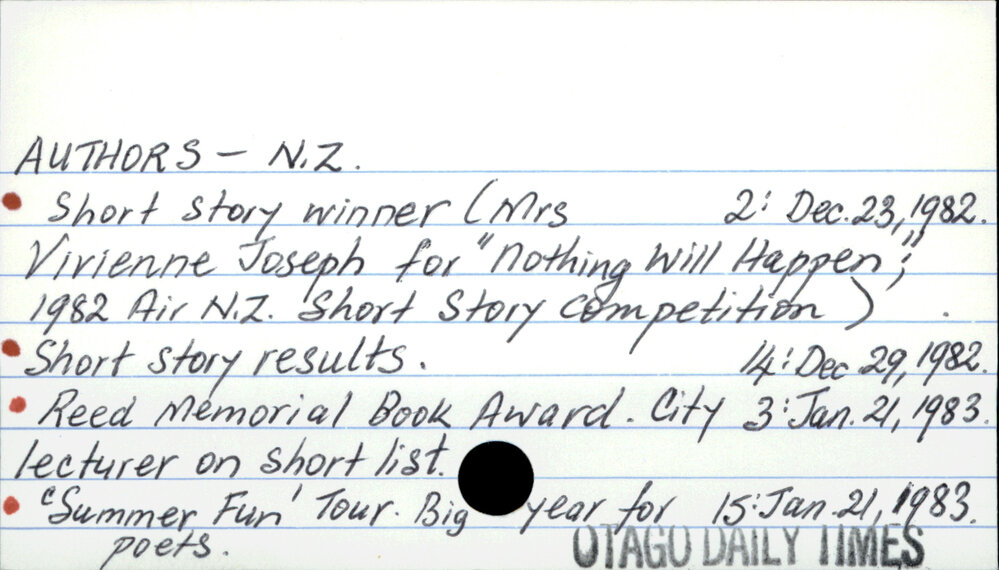 AUTHORS - N.Z.
• Short story winner (Mrs 2: Dec. 23, 1982.
Vivienne Joseph for "Nothing Will Happen";
1982 Air N.Z. Short Story Competition)
• Short story results. 14: Dec 29, 1982.
• Reed Memorial Book Award. City 3: Jan. 21, 1983.
lecturer on short list.
• 'Summer Fun' Tour. Big year for 15: Jan. 21, 1983.
poets.
OTAGO DAILY TIMES